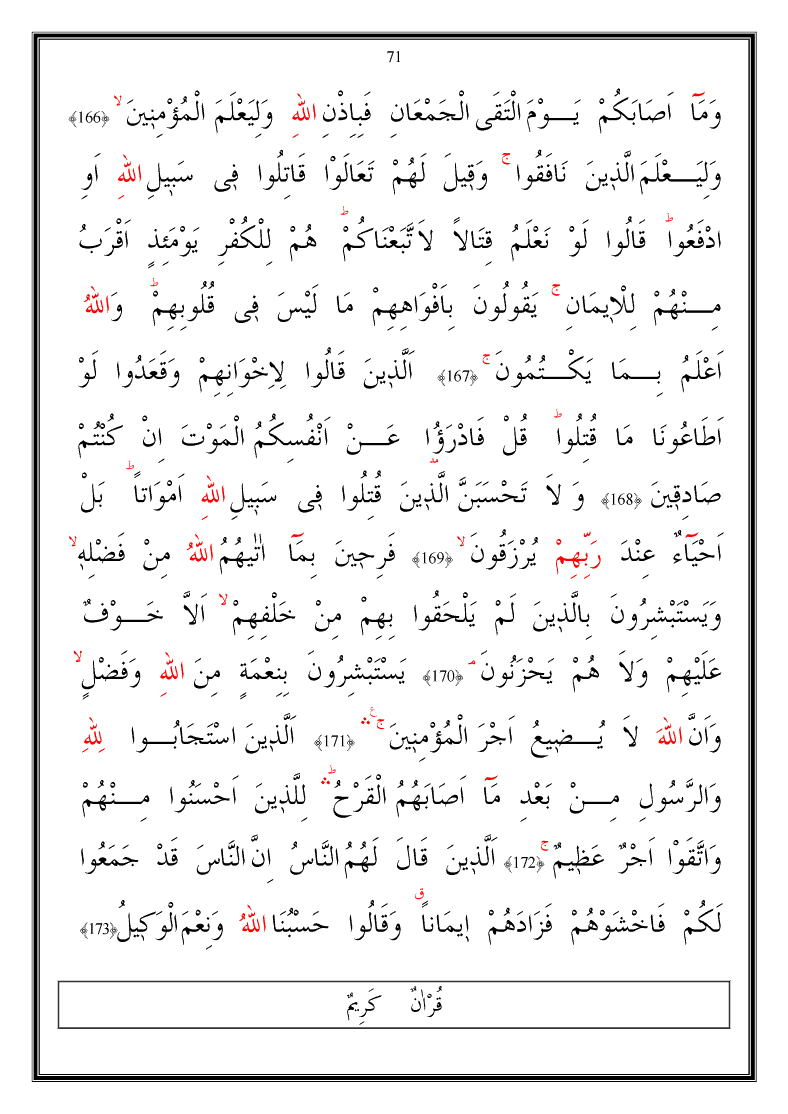 71
وَمَٓا اَصَابَكُمْ يَـــوْمَ الْتَقَى الْجَمْعَانِ فَبِاِذْنِ اللّٰهِ وَلِيَعْلَمَ الْمُؤْمِنٖينَ ۙ ﴿166﴾
وَلِيَـــعْلَمَ الَّذٖينَ نَافَقُوا ۚ وَقٖيلَ لَهُمْ تَعَالَوْا قَاتِلُوا فٖى سَبٖيلِ اللّٰهِ اَوِ
ادْفَعُوا ؕ قَالُوا لَوْ نَعْلَمُ قِتَالاً لاَ تَّبَعْنَاكُمْ ؕ هُمْ لِلْكُفْرِ يَوْمَئِذٍ اَقْرَبُ
مِـــنْهُمْ لِلْاٖيمَانِ ۚ يَقُولُونَ بِاَفْوَاهِهِمْ مَا لَيْسَ فٖى قُلُوبِهِمْ ؕ وَاللّٰهُ
اَعْلَمُ بِـــمَا يَكْـــتُمُونَ ۚ ﴿167﴾ اَلَّذٖينَ قَالُوا لِاِخْوَانِهِمْ وَقَعَدُوا لَوْ
اَطَاعُونَا مَا قُتِلُوا ؕ قُلْ فَادْرَؤُا عَـــنْ اَنْفُسِكُمُ الْمَوْتَ اِنْ كُنْتُمْ
صَادِقٖينَ ﴿168﴾ وَ لاَ تَحْسَبَنَّ الَّذٖينَ قُتِلُوا فٖى سَبٖيلِ اللّٰهِ اَمْوَاتاً ؕ بَلْ
اَحْيَٓاءٌ عِنْدَ رَبِّهِمْ يُرْزَقُونَ ۙ ﴿169﴾ فَرِحٖينَ بِمَٓا اٰتٰيهُمُ اللّٰهُ مِنْ فَضْلِهٖ ۙ
وَيَسْتَبْشِرُونَ بِالَّذٖينَ لَمْ يَلْحَقُوا بِهِمْ مِنْ خَلْفِهِمْ ۙ اَلاَّ خَـــوْفٌ
عَلَيْهِمْ وَلاَ هُمْ يَحْزَنُونَ ۘ ﴿170﴾ يَسْتَبْشِرُونَ بِنِعْمَةٍ مِنَ اللّٰهِ وَفَضْلٍ ۙ
وَاَنَّ اللّٰهَ لاَ يُـــضٖيعُ اَجْرَ الْمُؤْمِنٖينَ ۚۛ ﴿171﴾ اَلَّذٖينَ اسْتَجَابُـــوا لِلّٰهِ
وَالرَّسُولِ مِـــنْ بَعْدِ مَٓا اَصَابَهُمُ الْقَرْحُ ؕۛ لِلَّذٖينَ اَحْسَنُوا مِـــنْهُمْ
وَاتَّقَوْا اَجْرٌ عَظٖيمٌ ۚ ﴿172﴾ اَلَّذٖينَ قَالَ لَهُمُ النَّاسُ اِنَّ النَّاسَ قَدْ جَمَعُوا
لَكُمْ فَاخْشَوْهُمْ فَزَادَهُمْ اٖيمَاناً ࣗ وَقَالُوا حَسْبُنَا اللّٰهُ وَنِعْمَ الْوَكٖيلُ ﴿173﴾
قُرْاٰنٌ كَرٖيمٌ